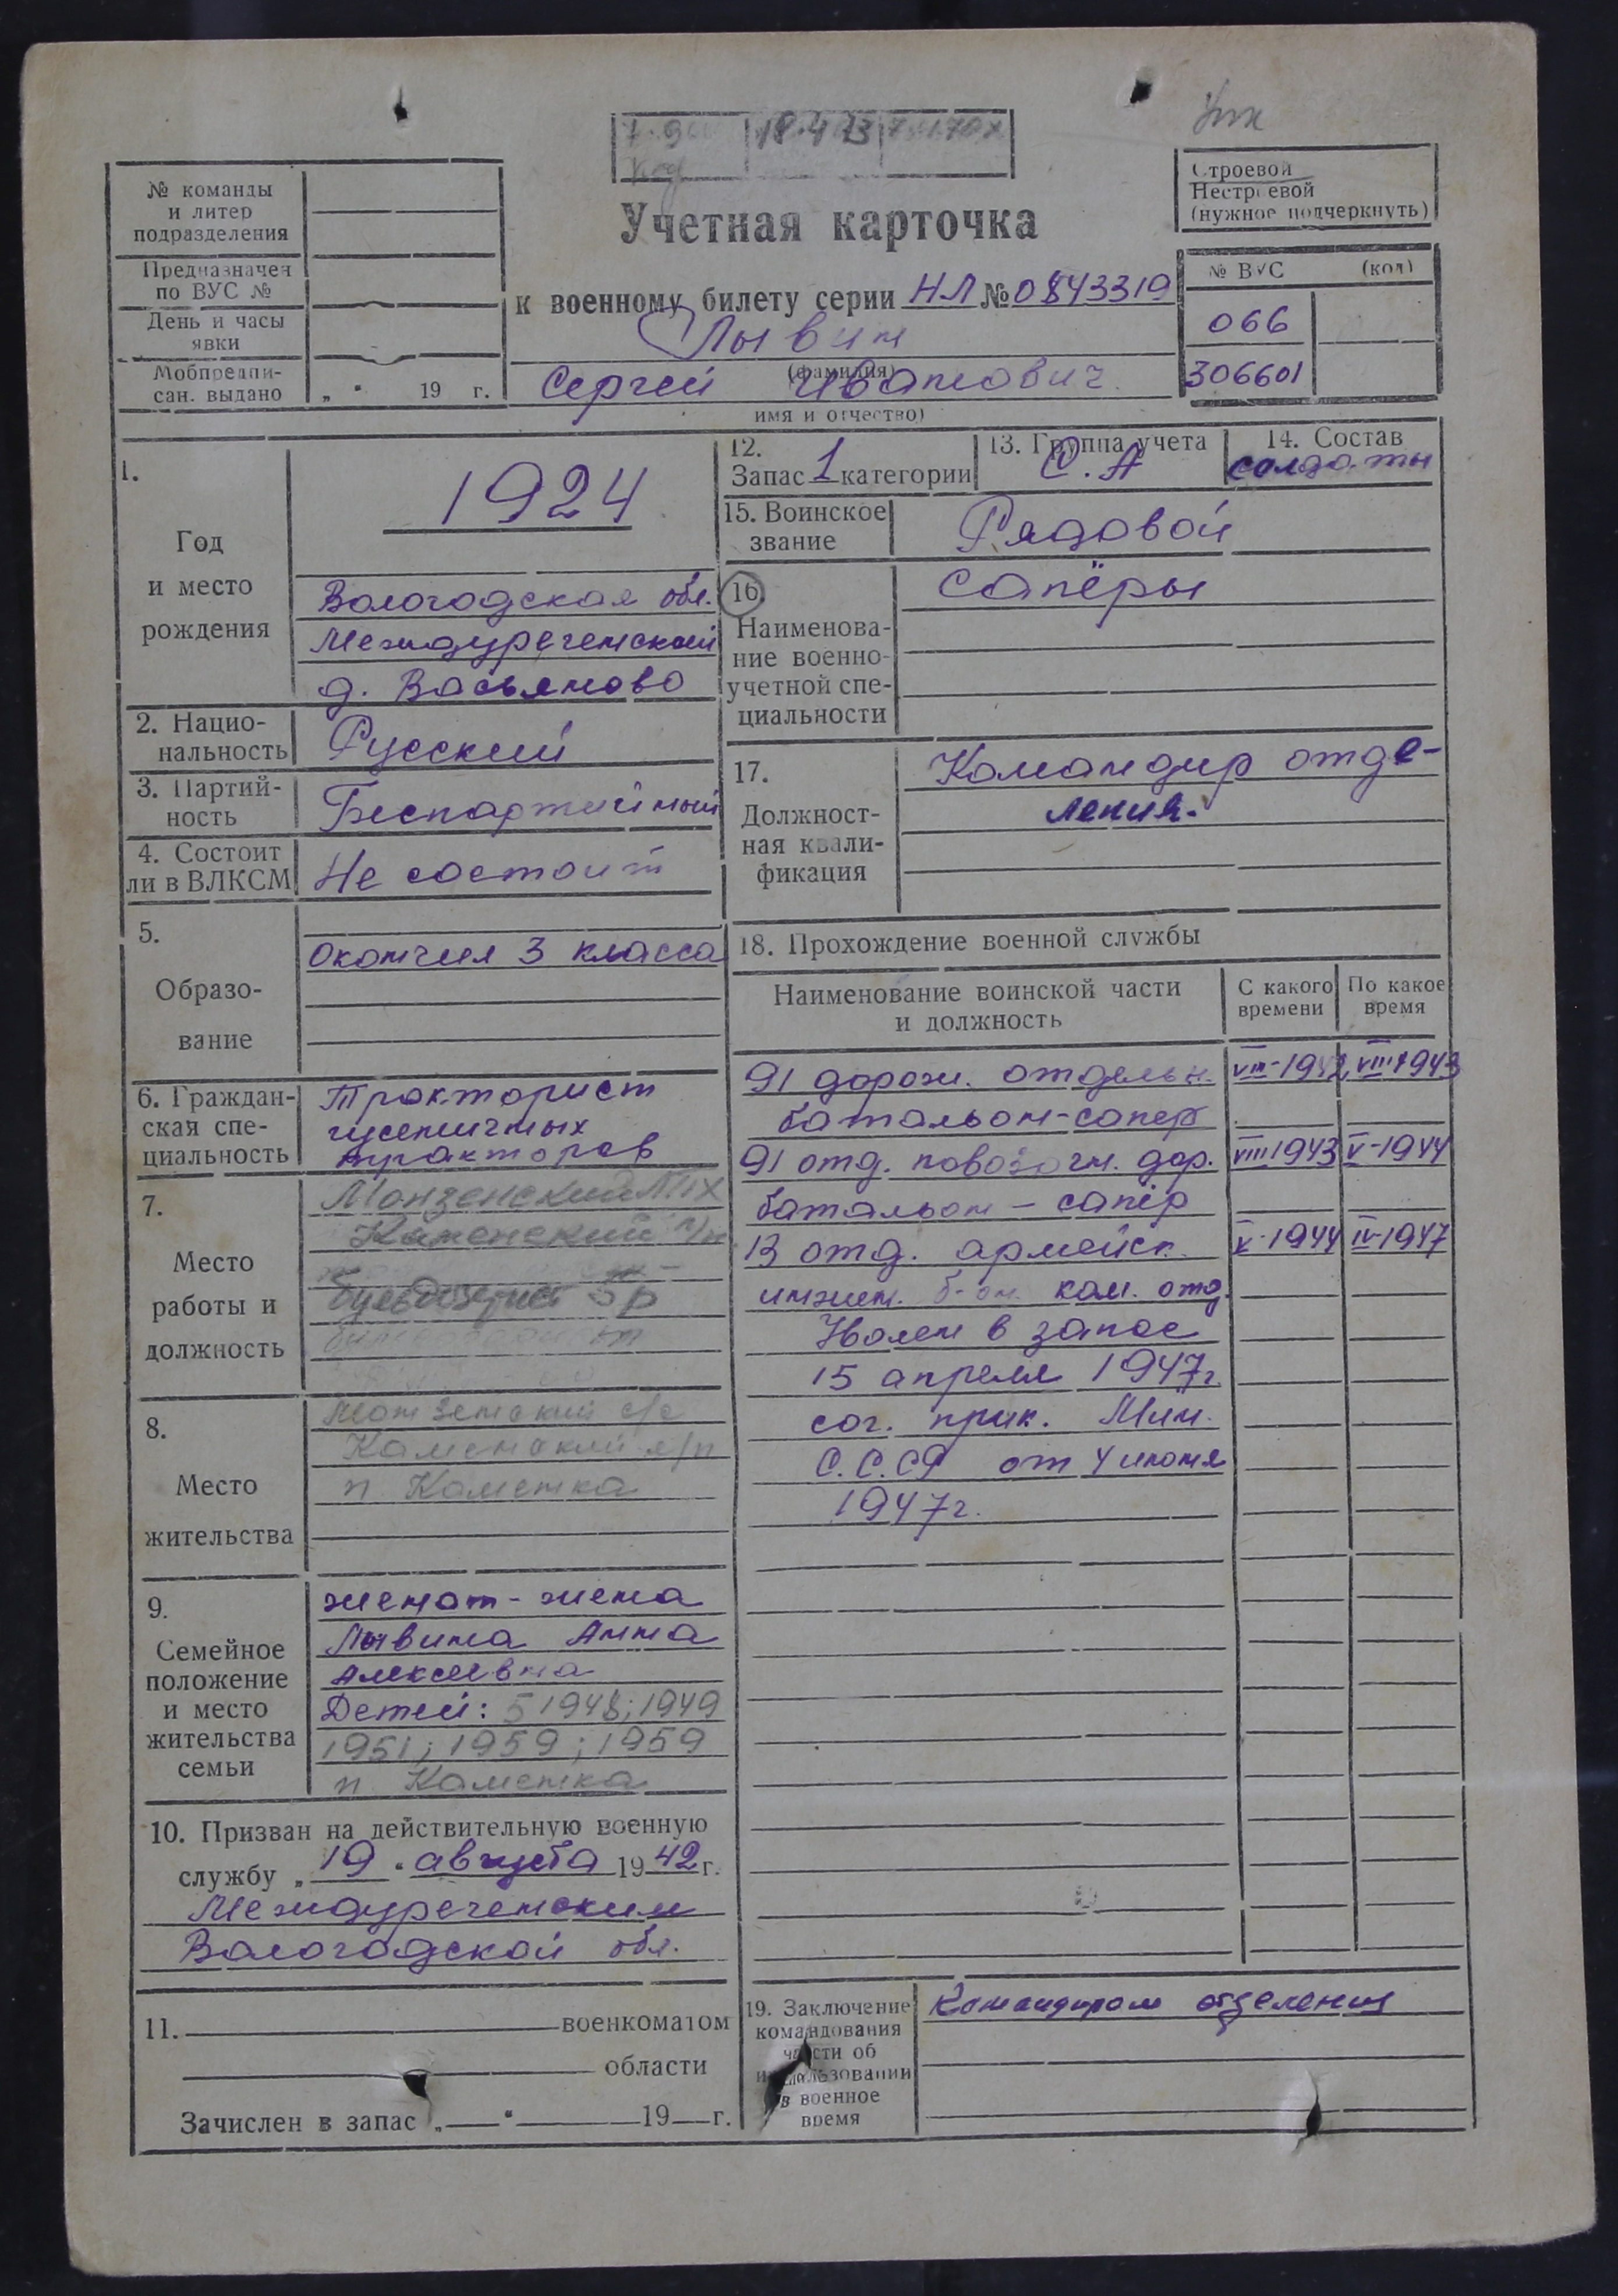 18.4
Учетная карточка
к военному билету серии НЛ № 0843319
Лывин
(фамилия)
Сергей Иванович
имя и отчество)
№ команды
и литер
подразделения
Предназначен
по ВУС №
День и часы
явки
Мобпредпи-
сан. выдано „ " 19 г.
Строевой
Нестроевой
(нужное подчеркнуть)
№ ВУС (код)
066
306601
1.
Год
и место
рождения
1924
Вологодская обл.
Междуреченский
д. Васьяново
2. Нацио-
нальность
Русский
3. Партий-
ность
Беспартийный
4. Состоит
ли в ВЛКСМ
Не состоит
5.
Образо-
вание
Окончил 3 класса
6. Граждан-
ская спе-
циальность
Тракторист
гусеничных
тракторов
7.
Место
работы и
должность
Монзенский ЛПХ
Каменский л/п
бульдозерист 5р
8.
Место
жительства
Монзенский с/с
Каменский л/п
п. Каменка
9.
Семейное
положение
и место
жительства
семьи
женат - жена
Лывина Анна
Алексеевна
Детей: 5 1948; 1949
1951; 1959; 1959
п. Каменка
10. Призван на действительную военную
службу „ 19 " августа 1942 г.
Междуреченским
Вологодской обл.
11. военкоматом
области
Зачислен в запас „ " 19 г.
12.
Запас 1 категории
13. Группа учета
С.А
14. Состав
солдаты
15. Воинское
звание
Рядовой
16
Наименова-
ние военно-
учетной спе-
циальности
Сапёры
17.
Должност-
ная квали-
фикация
Командир отде-
ления.
18. Прохождение военной службы
Наименование воинской части
и должность
С какого
времени
По какое
время
91 дорожн. отдельн. VIII-1942 VIII-1943
батальон-сапер
91 отд. повозочн. дор. VIII 1943 V-1944
батальон - сапёр
13 отд. армейск. V-1944 IV-1947
инжен. б-он. ком. отд.
Уволен в запас
15 апреля 1947г.
сог. прик. Мин.
С.С.СР от 4 июня
1947г.
19. Заключение
командования
части об
использовании
в военное
время
Командиром отделения